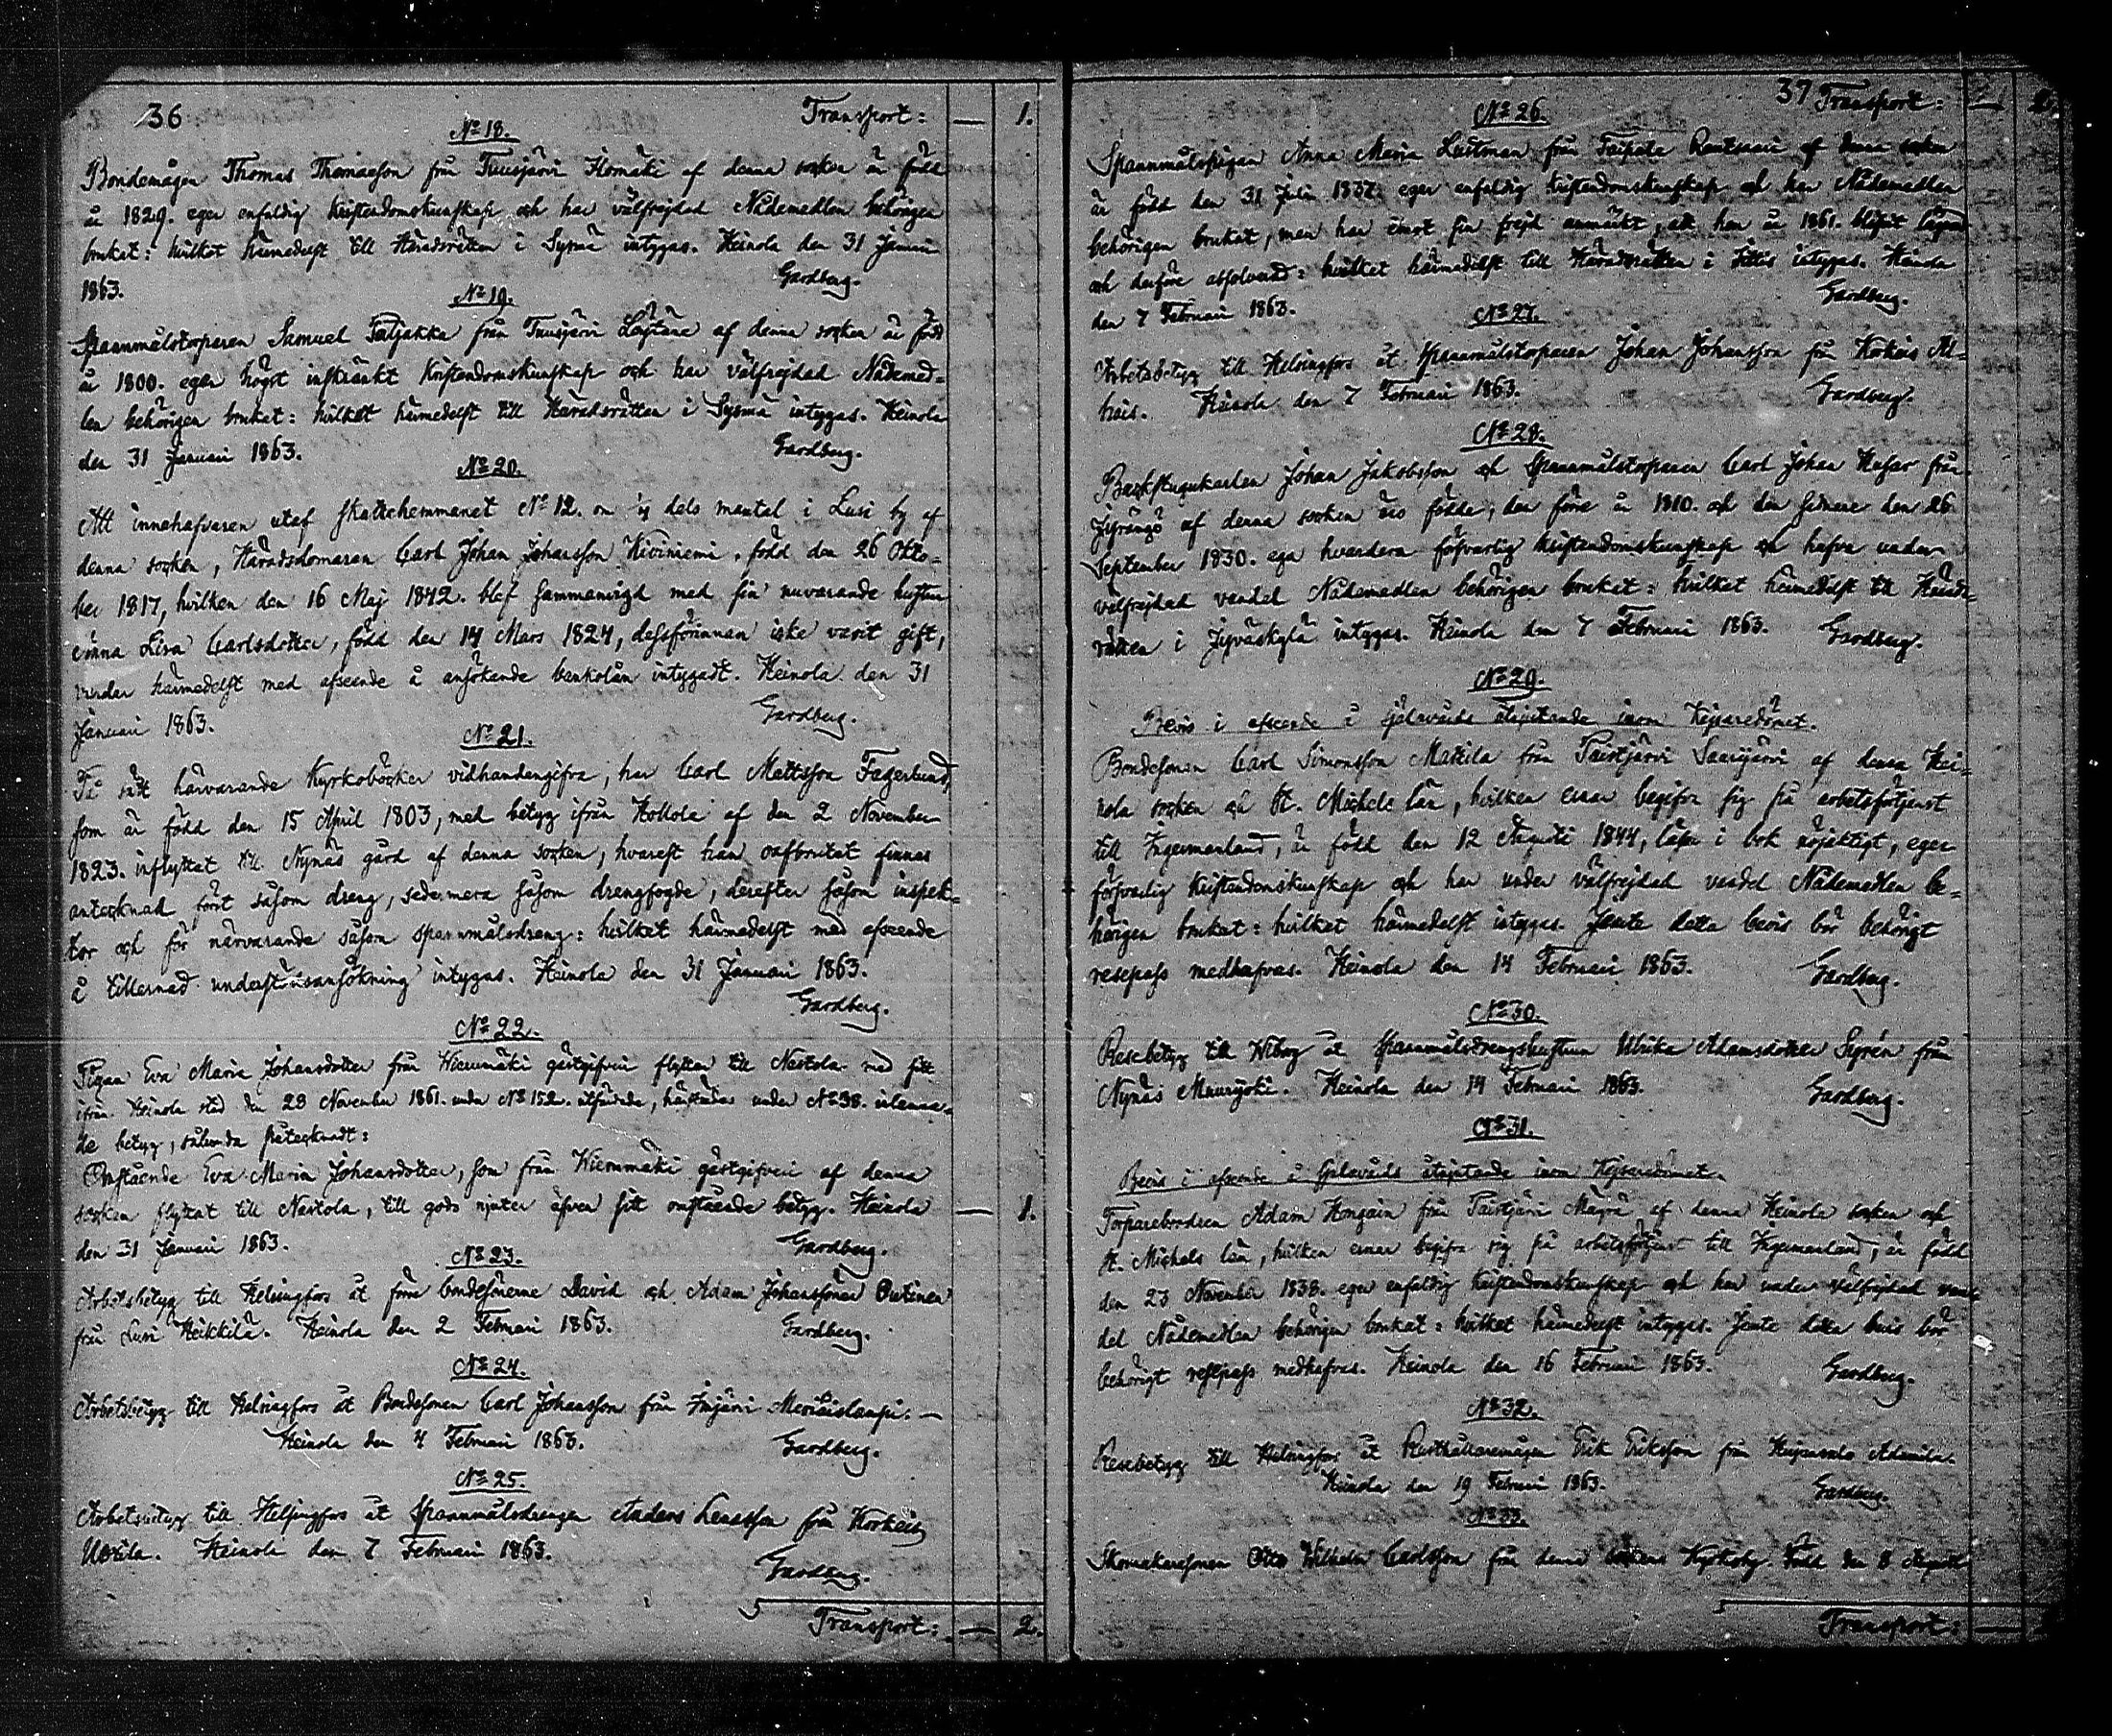 36
Transport: — 1.
No 18.
Bondemågen Thomas Thomasson från Tuusjärvi Homäki af denna socken är född
år 1829. eger enfaldig kristendomskunskap och har välfrejdad Nådemedlen behörigen
brukat: hvilket härmedelst till Häradsrätten i Sysmä intygas. Heinola den 31 Januari
1863. Gardberg.
No 19.
Spannmålstorparen Samuel från Tuusjärvi af denna socken är född
år 1800. eger högst inskränkt kristendomskunskap och har välfrejdad Nådemed-
len behörigen brukat: hvilket härmedelst till Häradsrätten i Sysmä intygas. Heinola
den 31 Januari 1863. Gardberg.
No 20.
Att innehafvaren utaf skattehemmanet No 12. om dels mantal i Lusi by af
denna socken, Häradsdomaren Carl Johan Johansson Kiviniemi, född den 26 Okto-
ber 1817, hvilken den 16 Maj 1842. blef sammanvigd med sin nuvarande hustru
Lisa Carlsdotter, född den 14 Mars 1824, dessförinnan icke varit gift,
varder härmedelst med afseende å ansökande banklån intygadt. Heinola den 31
Januari 1863. Gardberg.
No 21.
På sätt härvarande Kyrkoböcker vidhandengifva, har Carl Mattsson Fagerlund,
som är född den 15 April 1803, med betyg ifrån Hollola af den 2 November
1823. inflyttat till Nynäs gård af denna socken, hvarest han oafbrutet finnes
antecknad först såsom dreng, sedermera såsom drengfogde, derefter såsom inspek-
tor och för närvarande såsom spannmålsdreng: hvilket härmedelst med afseende
å tillernad understödsansökning intygas. Heinola den 31 Januari 1863.
Gardberg.
No 22.
Pigan Eva Maria Johansdotter från Wierumäki gästgifveri flyttar till Nastola med sitt
ifrån Heinola stad den 28 November 1861. under No 152. utfärdade, härstädes under No 38. inlemna-
de betyg, sålunda påtecknadt:
Omstående Eva Maria Johansdotter, som från Wierumäki gästgifveri af denna
socken flyttat till Nastola, till godo njuter äfven sitt omstående betyg. Heinola — 1.
den 31 Januari 1863. Gardberg.
No 23.
Arbetsbetyg till Helsingfors åt förre bondesönerne David och Adam Johanssöner Outinen
från Lusi Heikkilä. Heinola den 2 Februari 1863. Gardberg.
No 24.
Arbetsbetyg till Helsingfors åt Bondesonen Carl Johansson från Imjärvi —
Heinola den 4 Februari 1863. Gardberg.
No 25.
Arbetsbetyg till Helsingfors åt Spannmålsdrengen Anders från Korkeis
Uotila. Heinola den 7 Februari 1863.
Gardberg.
Transport: — 2.
37 Transport: — 2.
No 26.
Spannmålspigan Anna Maria Lustman från Taipale af denna socken
är född den 31 Juli 1837. eger enfaldig kristendomskunskap och har Nådemedlen
behörigen brukat, men har emot sin frejd anmärkt, att hon år 1861. blifvit lägrad
och derföre absolverad: hvilket härmedelst till Häradsrätten i Iittis intygas. Heinola
den 7 Februari 1863. Gardberg.
No 27.
Arbetsbetyg till Helsingfors åt Spannmålstorparen Johan Johansson från Korkeis
Heinola den 7 Februari 1863. Gardberg.
No 28.
Backstugukarlen Johan Jakobsson och Spannmålstorparen Carl Johan Husar från
Jyrängö af denna socken äro födde, den förre år 1810. och den sednare den 26
September 1830. ega hvardera försvarlig kristendomskunskap och hafva under
välfrejdad vandel Nådemedlen behörigen brukat: hvilket härmedelst till Härads-
rätten i Jyväskylä intygas. Heinola den 7 Februari 1863. Gardberg.
No 29.
Bevis i afseende å själavårds åtnjutande inom Kejsaredömet.
Bondesonen Carl Simonsson Mattila från Taistjärvi Saarijärvi af denna Hei-
nola socken och St. Michels län, hvilken ernar begifva sig på arbetsförtjenst
till Ingermanland, är född den 12 Augusti 1844, läser i bok nöjaktigt, eger
försvarlig kristendomskunskap och har under välfrejdad vandel Nådemedlen be-
hörigen brukat: hvilket härmedelst intygas. Jemte detta bevis bör behörigt
resepass medhafvas. Heinola den 14 Februari 1863. Gardberg.
No 30.
Resebetyg till Wiborg åt Spannmålsdrengshustrun Ulrika Adamsdotter Syrén från
Nynäs Heinola den 14 Februari 1863. Gardberg.
No 31.
Bevis i afseende å själavårds åtnjutande inom Kejsaredömet.
Torparebrodren Adam från Taistjärvi Mäyrä af denna Heinola socken och
St. Michels län, hvilken ernar begifva sig på arbetsförtjenst till Ingermanland, är född
den 23 November 1838. eger enfaldig kristendomskunskap och har under välfrejdad van-
del Nådemedlen behörigen brukat: hvilket härmedelst intygas. Jemte detta bevis bör
behörigt resepass medhafvas. Heinola den 16 Februari 1863. Gardberg.
No 32.
Resebetyg till Helsingfors åt Rusthållaremågen Erik Eriksson från
Heinola den 19 Februari 1863. Gardberg.
No 33.
Skomakaresonen Otto Wilhelm Carlsson från denna sockens Kyrkoby. Född den 8 Augusti
Transport: —